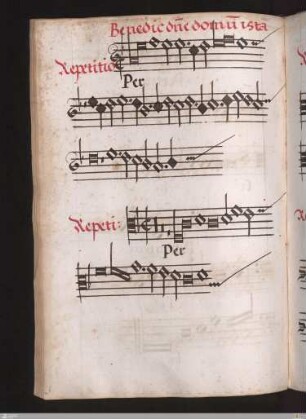 Benedic dñe domū ista
Repetitio
Per
Repeti:
Per